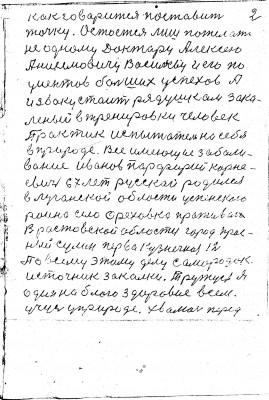 2
как говорится поставит
точку. Остется миш пожелат
не одному Доктару Алексею
Анифмовичу Васильву и его по
циентов болших успехов А
извокустаит рядушкам зака
леньй в тренировки человек
практик испытател на себя
в природе. Все имеющие заболи-
вание иванов Парфирий корне-
евич 67 лет русской родился
в луганской области успенского
роина сило Ореховка праживал
В растовской области город крас-
ный сулин перва кузнечная 12
По всему этому делу самородок
источник закалки. Тружуся я
один на благо здоровие всем.
учуся у природе. хвалюся перед